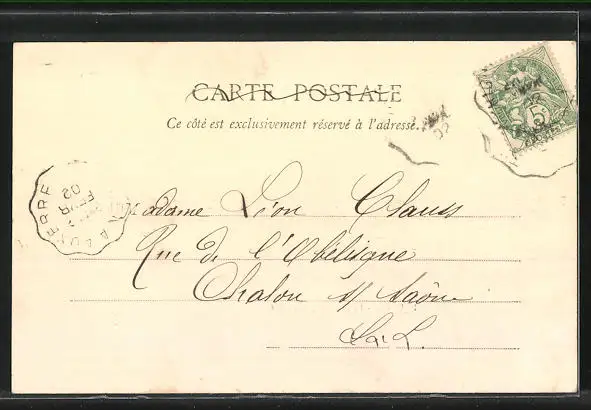 CARTE POSTALE
Ce côté est exclusivement réservé à l'adresse.
FEVR
02
A AUXERRE
FEVR
02
5
Madame Léon Clauss
Rue de l'Obélisque
Chalon s/ Saône
S. et L.